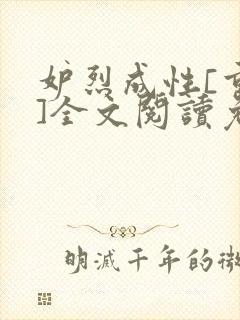 妒烈成性[重
]全文閱讀
明滅千年的微